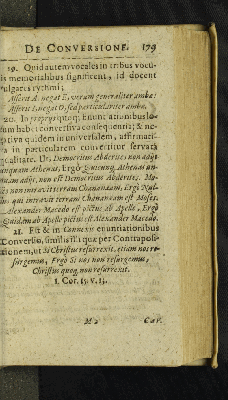 DE CONVERSIONE. 179
19. Quid autem vocales in tribus vocu-
lis memorialibus significent, id docent
vulgares rythmi;
Asserit A, negat E, verum generaliter ambæ:
Asserit I, negat O, sed particulariter ambo.
20. In propriis quoq; Enunciationibus lo-
cum habet conversiva consequentia; & ne-
gativa quidem in universalem, affirmati-
va in particularem convertitur servata
qualitate. Ut: Democritus Abderites non adijt
unquam Athenas, Ergò Quicunq; Athenas un-
quam adijt, non est Democritus Abderites. Mo-
ses non intravit terram Chanaanam, Ergò Nul-
lus, qui intravit terram Chanaanam est Moses.
Alexander Macedo est pictus ab Apelle, Ergò
Quidam ab Apelle pictus est Alexander Macedo.
21. Est & in Connexis enuntiationibus
Conversio, similis illi quæ per Contraposi-
tionem, ut Si Christus resurrexit, etiam nos re-
surgemus, Ergò Si nos non resurgemus,
Christus quoq; non resurrexit.
1. Cor. 15. v. 13.
M 2 CAP.